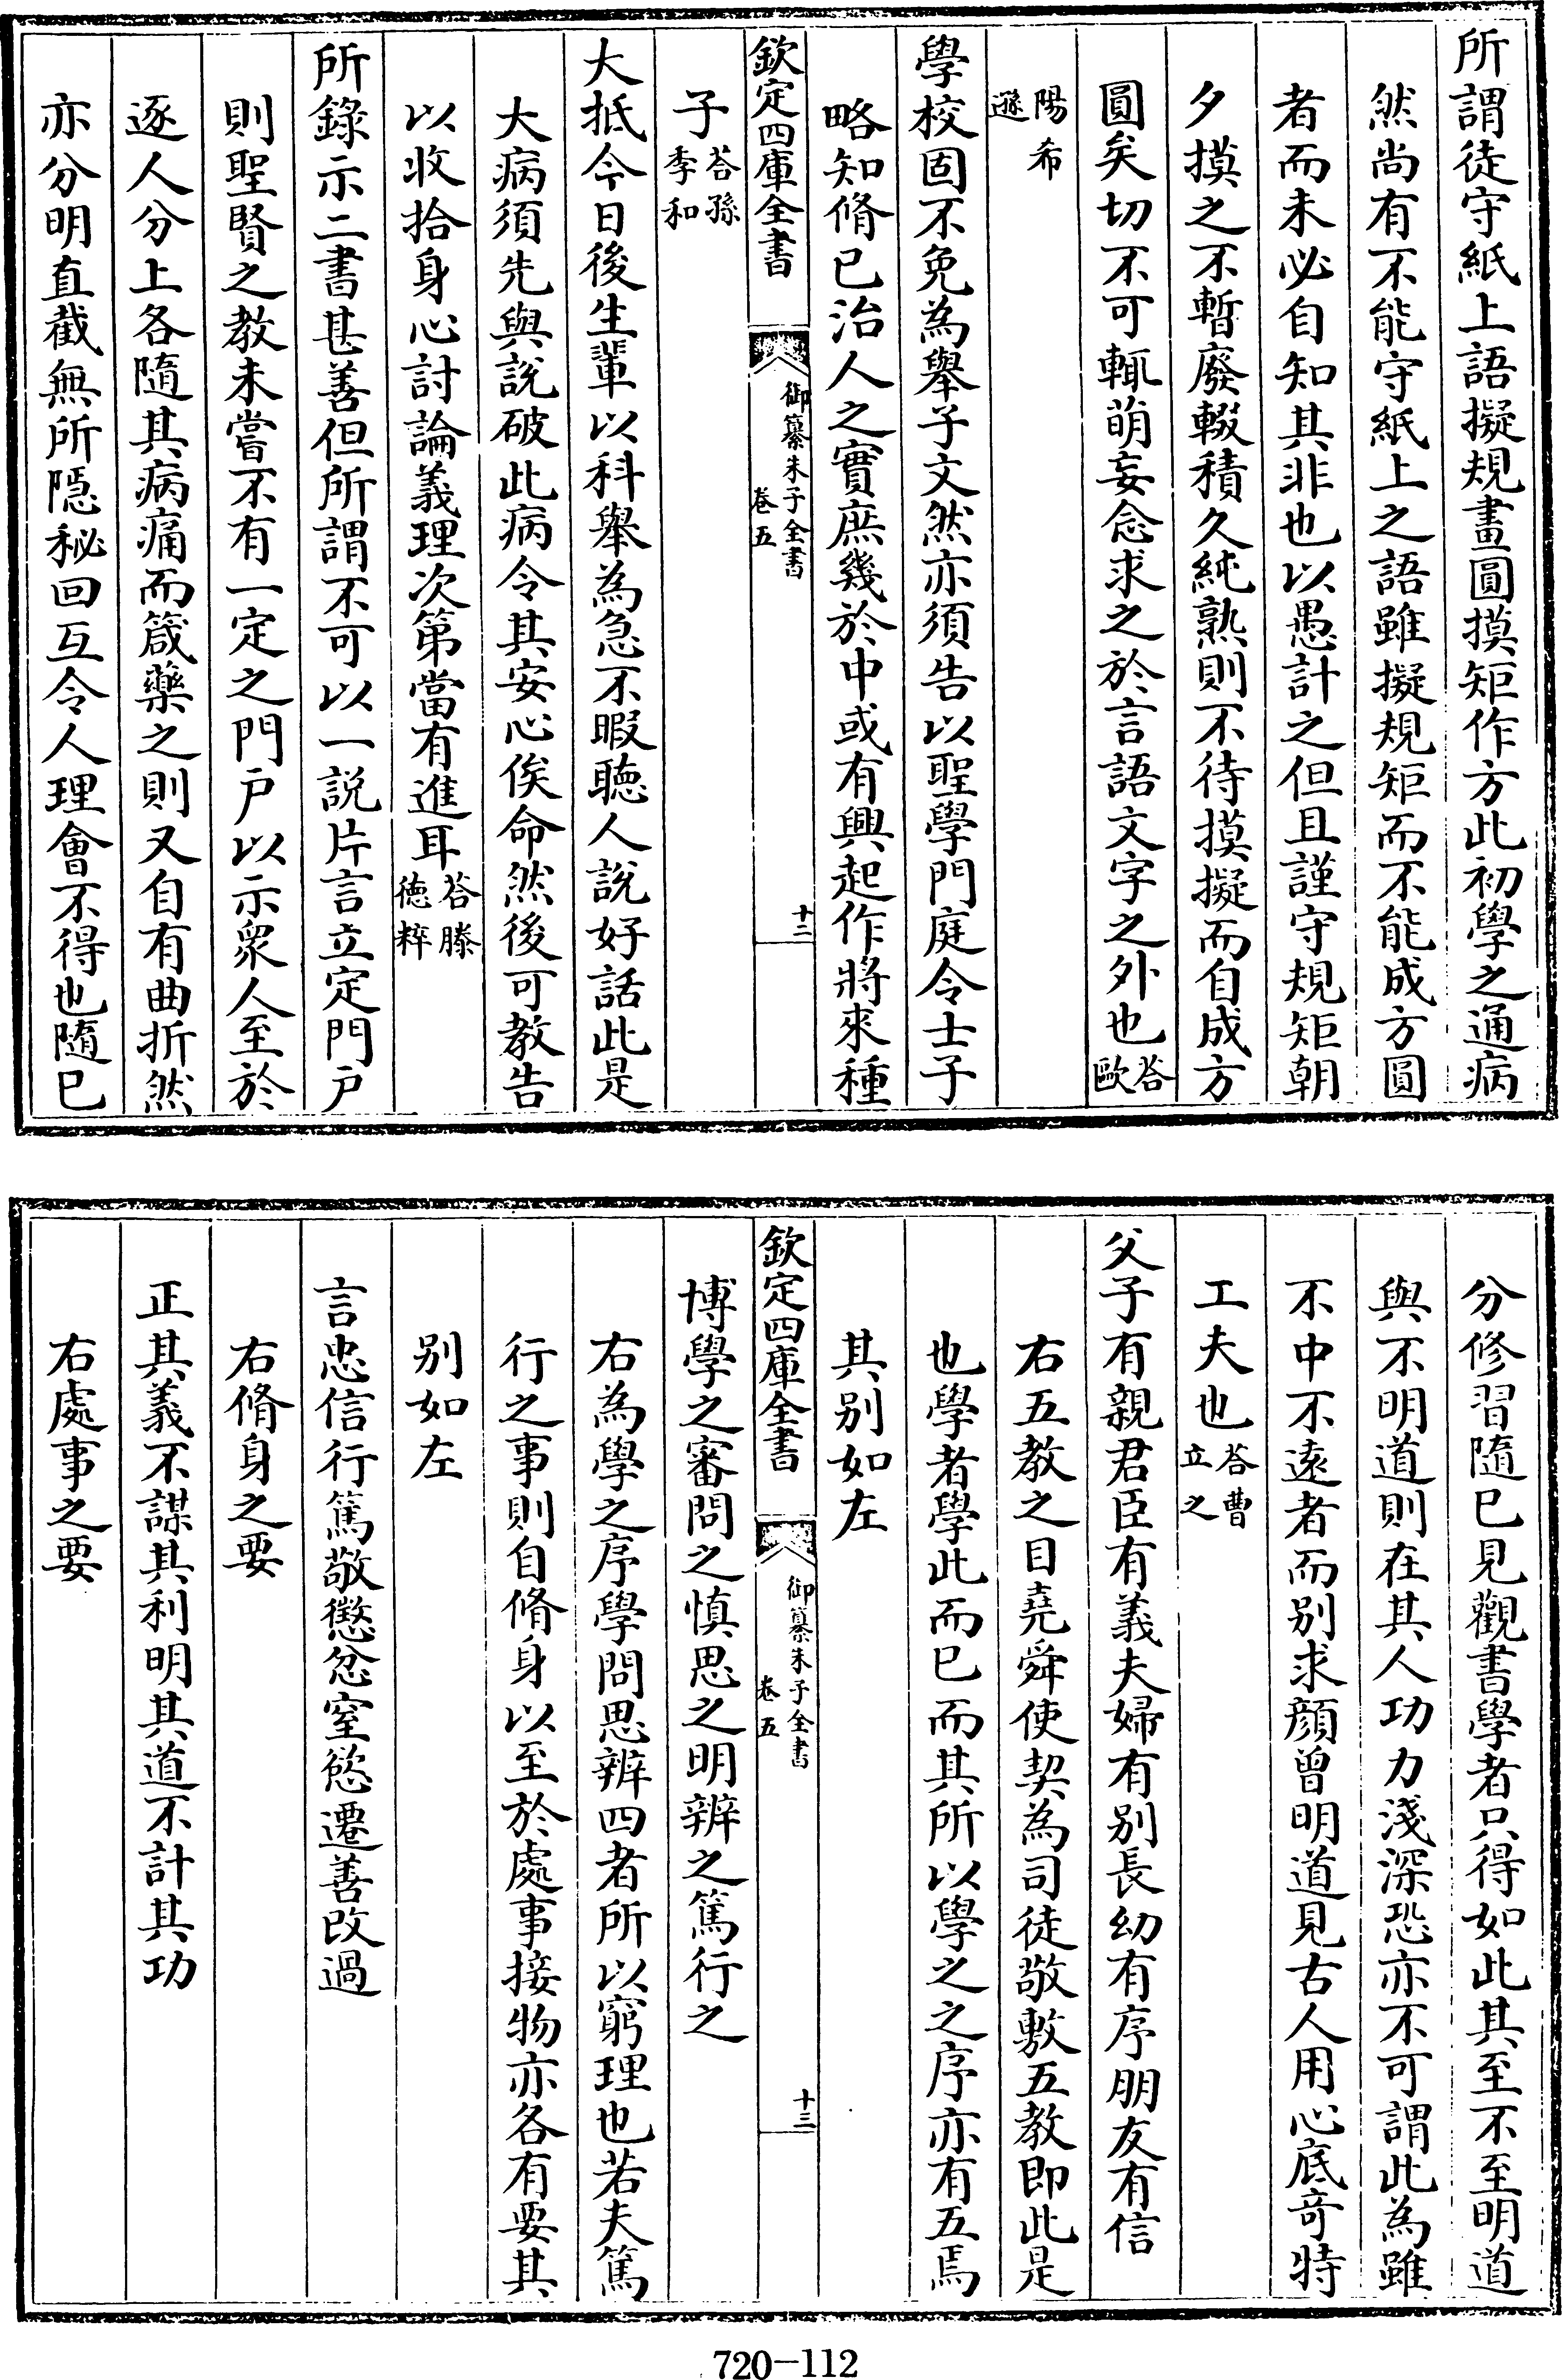 所謂徒守紙上語擬規畫圓摸矩作方此初學之通病
然尚有不能守紙上之語雖擬規矩而不能成方圓
者而未必自知其非也以愚計之但且謹守規矩朝
夕摸之不暫廢輟積久純熟則不待摸擬而自成方
圓矣切不可輒萌妄念求之於言語文字之外也答歐
陽希遜
學校固不免為舉子文然亦須告以聖學門庭令士子
略知脩已治人之實庶幾於中或有興起作將來種
欽定四庫全書 御纂朱子全書 卷五 十二
子答孫季和
大抵今日後生輩以科舉為急不暇聽人說好話此是
大病須先與說破此病令其安心俟命然後可教告
以收拾身心討論義理次第當有進耳答滕德粹
所錄示二書甚善但所謂不可以一說片言立定門戶
則聖賢之教未嘗不有一定之門戶以示衆人至於
逐人分上各隨其病痛而箴藥之則又自有曲折然
亦分明直截無所隱秘回互令人理會不得也隨已
分修習隨已見觀書學者只得如此其至不至明道
與不明道則在其人功力淺深恐亦不可謂此為雖
不中不遠者而别求顔曾明道見古人用心底竒特
工夫也答曹立之
父子有親君臣有義夫婦有别長幼有序朋友有信
右五教之目堯舜使契為司徒敬敷五教即此是
也學者學此而已而其所以學之之序亦有五焉
其别如左
欽定四庫全書 御纂朱子全書 卷五 十三
博學之審問之慎思之明辨之篤行之
右為學之序學問思辨四者所以窮理也若夫篤
行之事則自脩身以至於處事接物亦各有要其
别如左
言忠信行篤敬懲忿窒慾遷善改過
右脩身之要
正其義不謀其利明其道不計其功
右處事之要
720-112